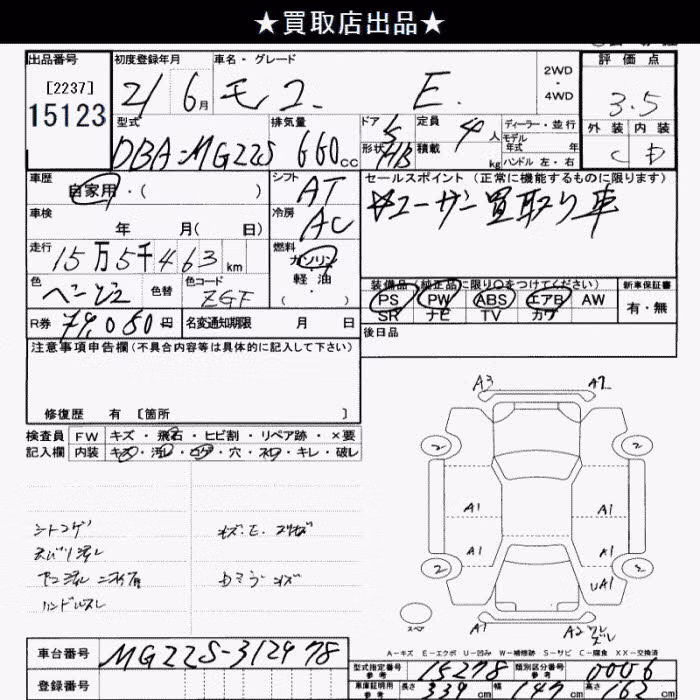 ★買取店出品★
出品番号 初度登録年月 車名・グレード 評価点
[2237]
15123
21 6月 モコ E. 2WD・4WD 3.5
型式 排気量 ドア 定員 ディーラー・並行 外装 内装
DBA-MG22S 660cc 5 4人 モデル年式 年 C D
形状 積載 kg ハンドル 左・右
HB
車歴 シフト セールスポイント (正常に機能するものに限ります)
自家用・( ) AT ユーザー買取り車
車検 冷房
年 月( 日) AC
走行 燃料
15万5千463km ガソリン
軽油
( )
色 色替 色コード 装備品(純正品に限り○をつけてください) 新車保証書
ベージュ ZGF PS PW ABS エアB AW 有・無
SR ナビ TV カワ
R券 円 名変通知期限 月 日 後日品
注意事項申告欄(不具合内容等は具体的に記入して下さい)
修復歴 有 [箇所 ]
検査員 FW キズ・飛石・ヒビ割・リペア跡・×要
記入欄 内装 キズ・汚レ・コゲ・穴・ヌレ・キレ・破レ
A3 A2
2 2
A1 A1
A1 A1
2 2
UA1
スペア
A1 A2
シートコゲ
ハンドルスレ
A-キズ E-エクボ U-凹み W-補修跡 S-サビ C-腐食 XX-交換済
車台番号 MG22S-312478
登録番号
型式指定番号 参考 15278 類別区分番号 参考 0006
車庫証明用 参考 長さ 339cm 幅 147cm 高さ 162cm